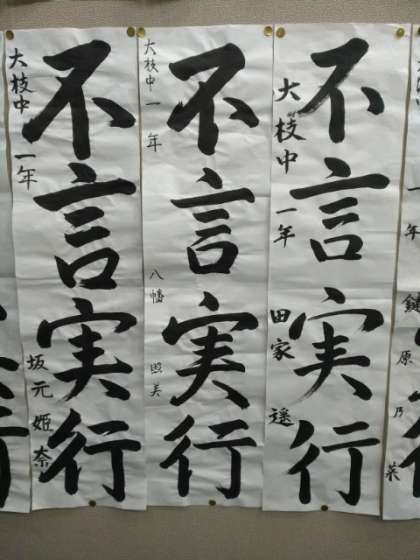 不言実行
大枝中 一年
坂元 姫奈
不言実行
大枝中 一年
八幡 照美
不言実行
大枝中 一年
田家 遥
年 鍵原 乃
行